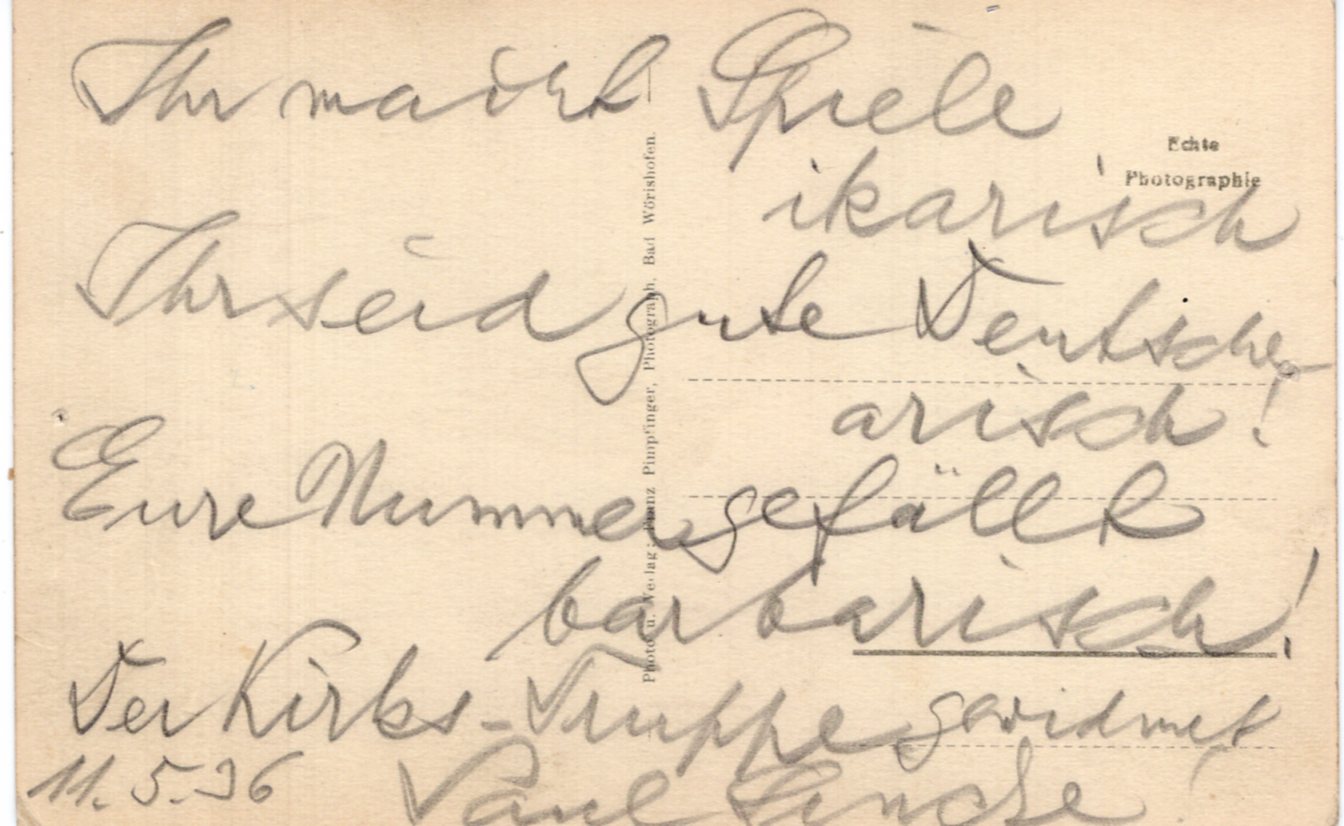 Ihr macht Spiele
ikarisch
Ihr seid gute Deutsche
arisch!
Eure Nummer gefällt
barbarisch!
Der Kirks-Truppe gewidmet
11.5.36
Paul Lincke
Echte
Photographie
Photo u. Verlag: Franz Pimpfinger, Photograph, Bad Wörishofen.